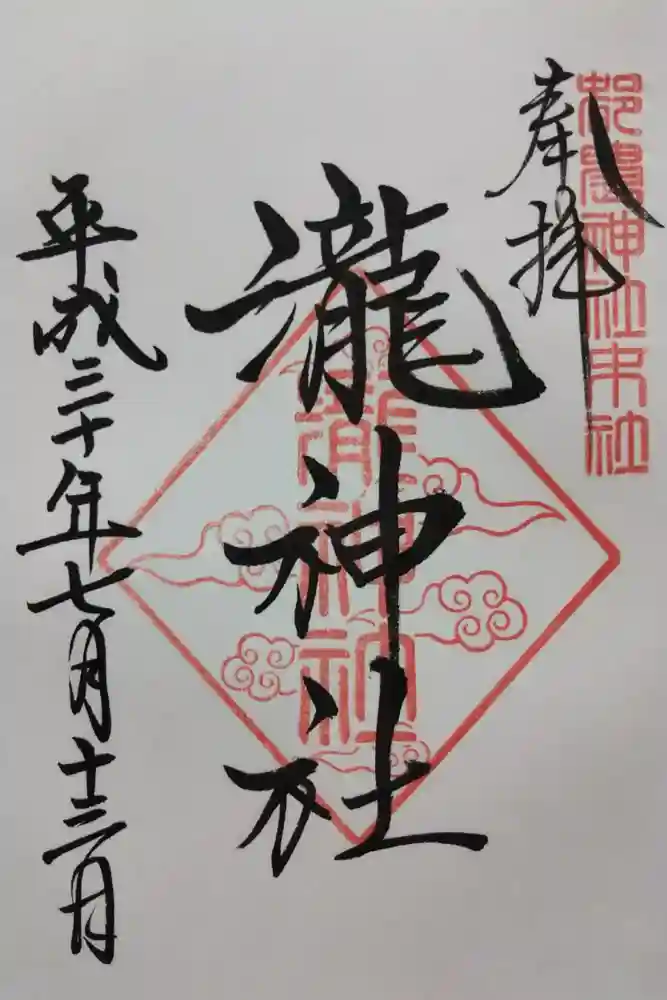 奉拝
都農神社末社
瀧神社
瀧神社
平成三十年七月十三日